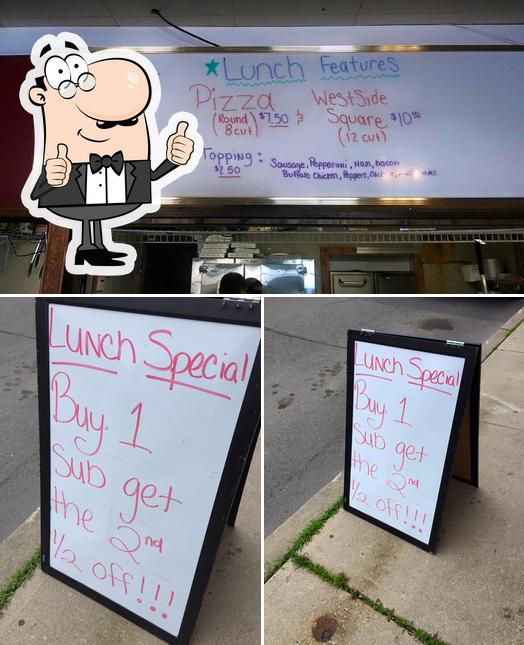 ★ Lunch Features
Pizza WestSide
(Round $7.50 & Square $10
8cut) (12 cut)
Topping : Sausage, Pepperoni, Ham, bacon
$2.50 Buffalo Chicken, Peppers,
Lunch Special
Buy 1
sub get
the 2nd
1/2 off!!!
Lunch Special
Buy 1
sub get
the 2nd
1/2 off!!!